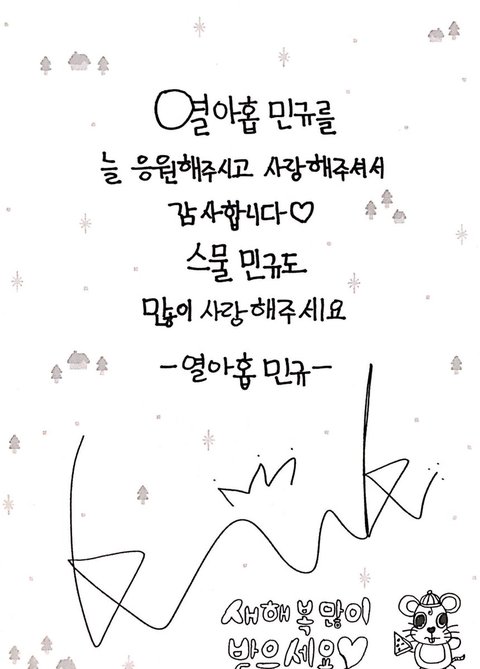 열아홉 민규를
늘 응원해주시고 사랑해주셔서
감사합니다♡
스물 민규도
많이 사랑해주세요
-열아홉 민규-
새해 복 많이
받으세요♡